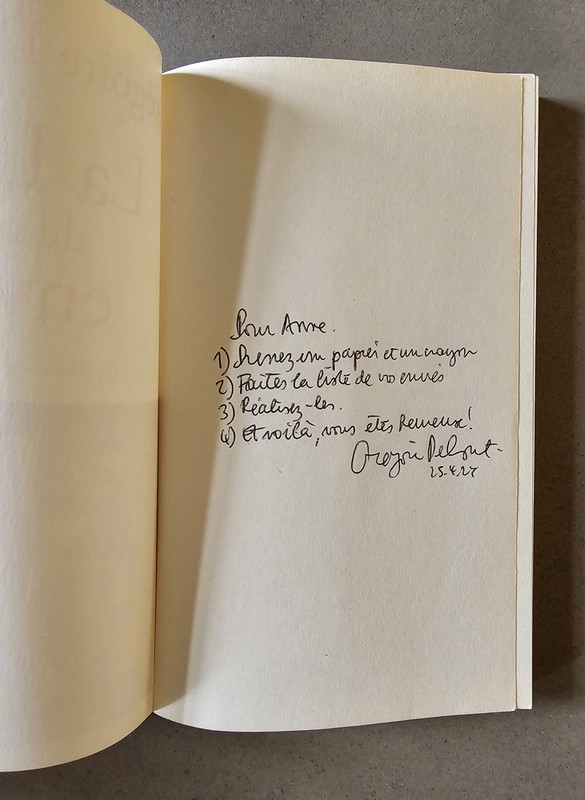 Pour Anne.
1) Prenez un papier et un crayon
2) Faites la liste de vos envies
3) Réalisez-les.
4) Et voilà, vous êtes heureux!
Grégoire Delacourt.